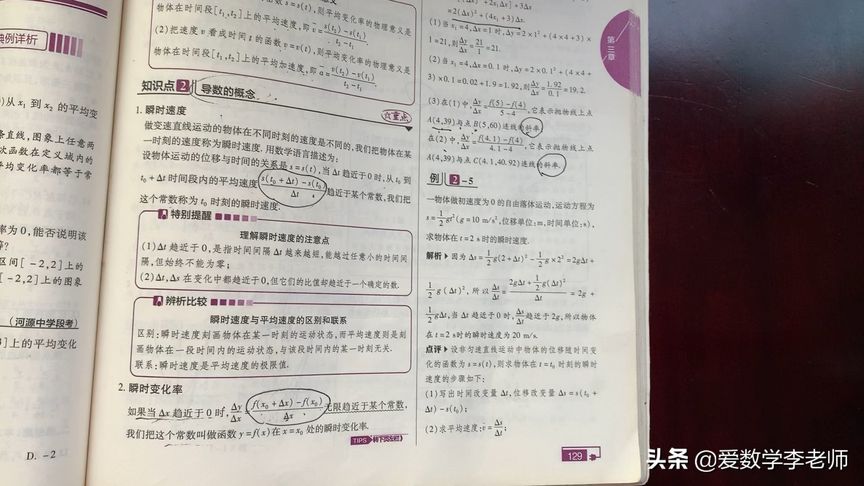 典例详析
)从 x₁ 到 x₂ 的平均变
条直线,图象上任意两
次函数在定义域内的
平均变化率都等于常
率为 0, 能否说明该
区间[-2,2]上的
[-2,2]上的图象
(河源中学段考)
]上的平均变化
D. -2
函数 s=s(t),则平均变化率的物理意义是
物体在时间段[t₁,t₂]上的平均速度,即 v̄=(s(t₂)-s(t₁))/(t₂-t₁)
(2)把速度 v 看成时间 t 的函数 v=v(t),则平均变化率的物理意义是
物体在时间段[t₁,t₂]上的平均加速度,即 ā=(v(t₂)-v(t₁))/(t₂-t₁)
知识点 2 导数的概念
1. 瞬时速度
☆重点
做变速直线运动的物体在不同时刻的速度是不同的,我们把物体在某
一时刻的速度称为瞬时速度. 用数学语言描述为:
设物体运动的位移与时间的关系是 s=s(t),当 Δt 趋近于 0 时,从 t₀ 到
t₀+Δt 时间段内的平均速度 (s(t₀+Δt)-s(t₀))/Δt 趋近于某个常数,我们把
这个常数称为 t₀ 时刻的瞬时速度.
特别提醒
理解瞬时速度的注意点
(1)Δt 趋近于 0,是指时间间隔 Δt 越来越短,能越过任意小的时间间
隔,但始终不能为零;
(2)Δt,Δs 在变化中都趋近于 0,但它们的比值却趋近于一个确定的数.
辨析比较
瞬时速度与平均速度的区别和联系
区别:瞬时速度刻画物体在某一时刻的运动状态,而平均速度则是刻
画物体在一段时间内的运动状态,与该段时间内的某一时刻无关.
联系:瞬时速度是平均速度的极限值.
2. 瞬时变化率
如果当 Δx 趋近于 0 时, Δy/Δx=(f(x₀+Δx)-f(x₀))/Δx 无限趋近于某个常数,
我们把这个常数叫做函数 y=f(x)在 x=x₀ 处的瞬时变化率.
TIPS
=2(Δx)²+(4x₁+3)Δx.
(1)当 x₁=4,Δx=1 时,Δy=2×1²+(4×4+3)×
1=21,则 Δy/Δx=21/1=21.
(2)当 x₁=4,Δx=0.1 时,Δy=2×0.1²+(4×4+
3)×0.1=0.02+1.9=1.92,则 Δy/Δx=1.92/0.1=19.2.
(3)在(1)中, Δy/Δx=(f(5)-f(4))/(5-4),它表示抛物线上点
A(4,39)与点 B(5,60)连线的斜率.
在(2)中, Δy/Δx=(f(4.1)-f(4))/(4.1-4),它表示抛物线上点
A(4,39)与点 C(4.1,40.92)连线的斜率.
例 2-5
一物体做初速度为 0 的自由落体运动,运动方程为
s=1/2gt²(g=10 m/s²,位移单位:m,时间单位:s),
求物体在 t=2 s 时的瞬时速度.
解析 因为 Δs=1/2g(2+Δt)²-1/2g×2²=2gΔt+
1/2g(Δt)²,所以 Δs/Δt=(2gΔt+1/2g(Δt)²)/Δt=2g+
1/2gΔt,当 Δt 趋近于 0 时, Δs/Δt 趋近于 2g,所以物体
在 t=2 s 时的瞬时速度为 20 m/s.
点评 设非匀速直线运动中物体的位移随时间变
化的函数为 s=s(t),则求物体在 t=t₀ 时刻的瞬时
速度的步骤如下:
(1)写出时间改变量 Δt,位移改变量 Δs=s(t₀+
Δt)-s(t₀);
(2)求平均速度:v̄=Δs/Δt;
第三章
129
头条 @爱数学李老师